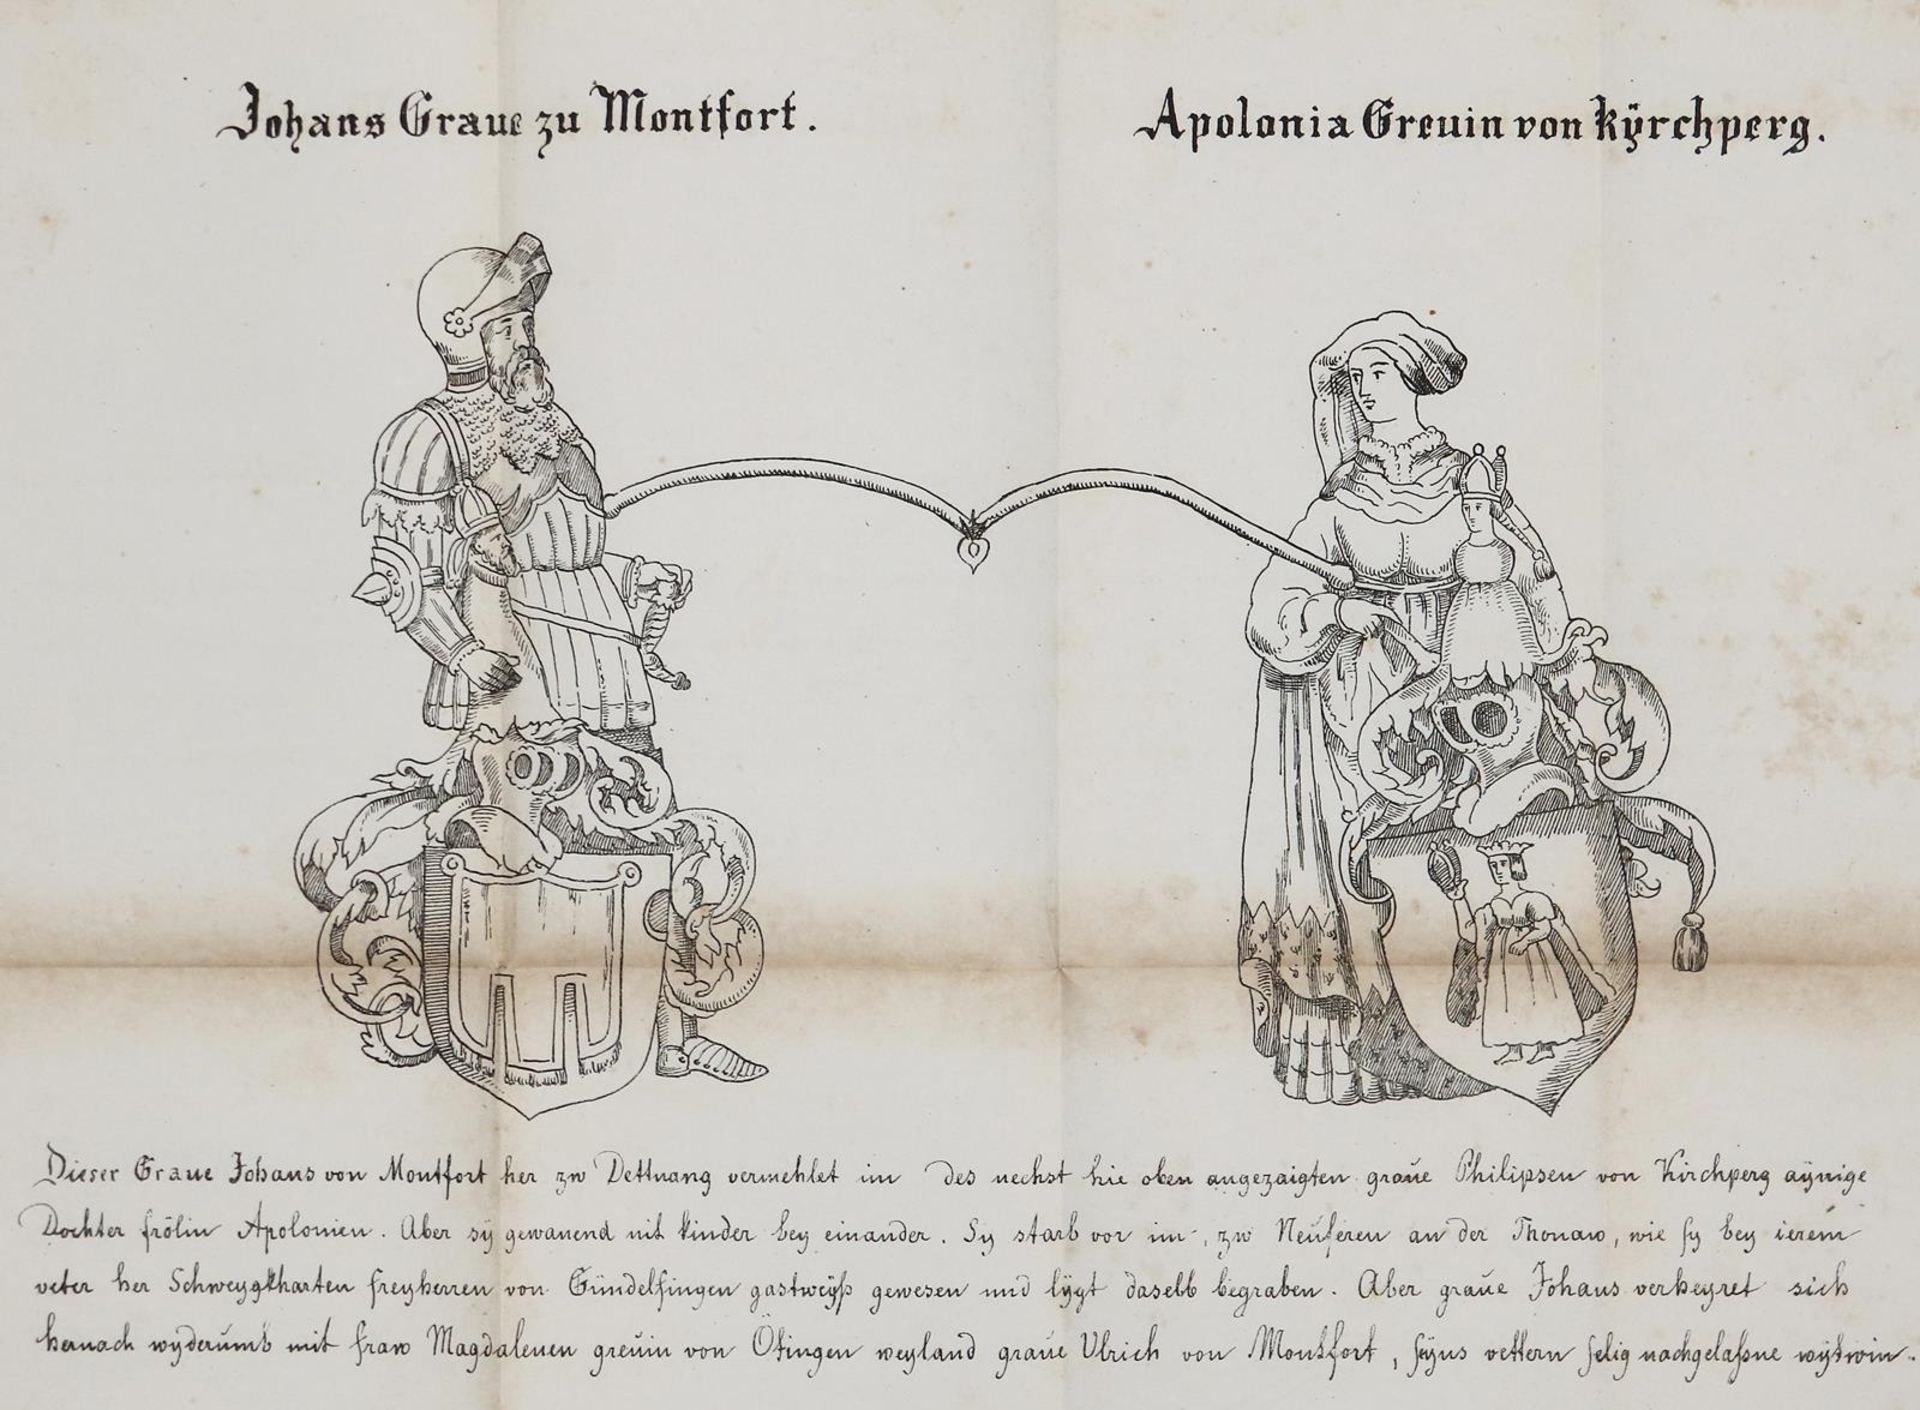 Johans Graue zu Montfort.
Apolonia Greuin von kÿrchperg.
Dieser Graue Johans von Montfort her zw Dettnang vermehlet im des nechst hie oben angezaigten graue Philipsen von Kirchperg aÿnige
Dochter frölin Apolonien. Aber sÿ gewanend nit kinder bey einander. Sy starb vor im, zw Neüferen an der Thonaw, wie sy bey ierem
veter her Schweygkharten freyherren von Gündelfingen gastweÿß gewesen und lÿgt daselb begraben. Aber graüe Johans verheyret sich
hernach wyderümb mit fraw Magdalenen greüin von Ötingen weyland graüe Ulrich von Montfort, sÿns vettern selig nachgelaßne wÿtwin.